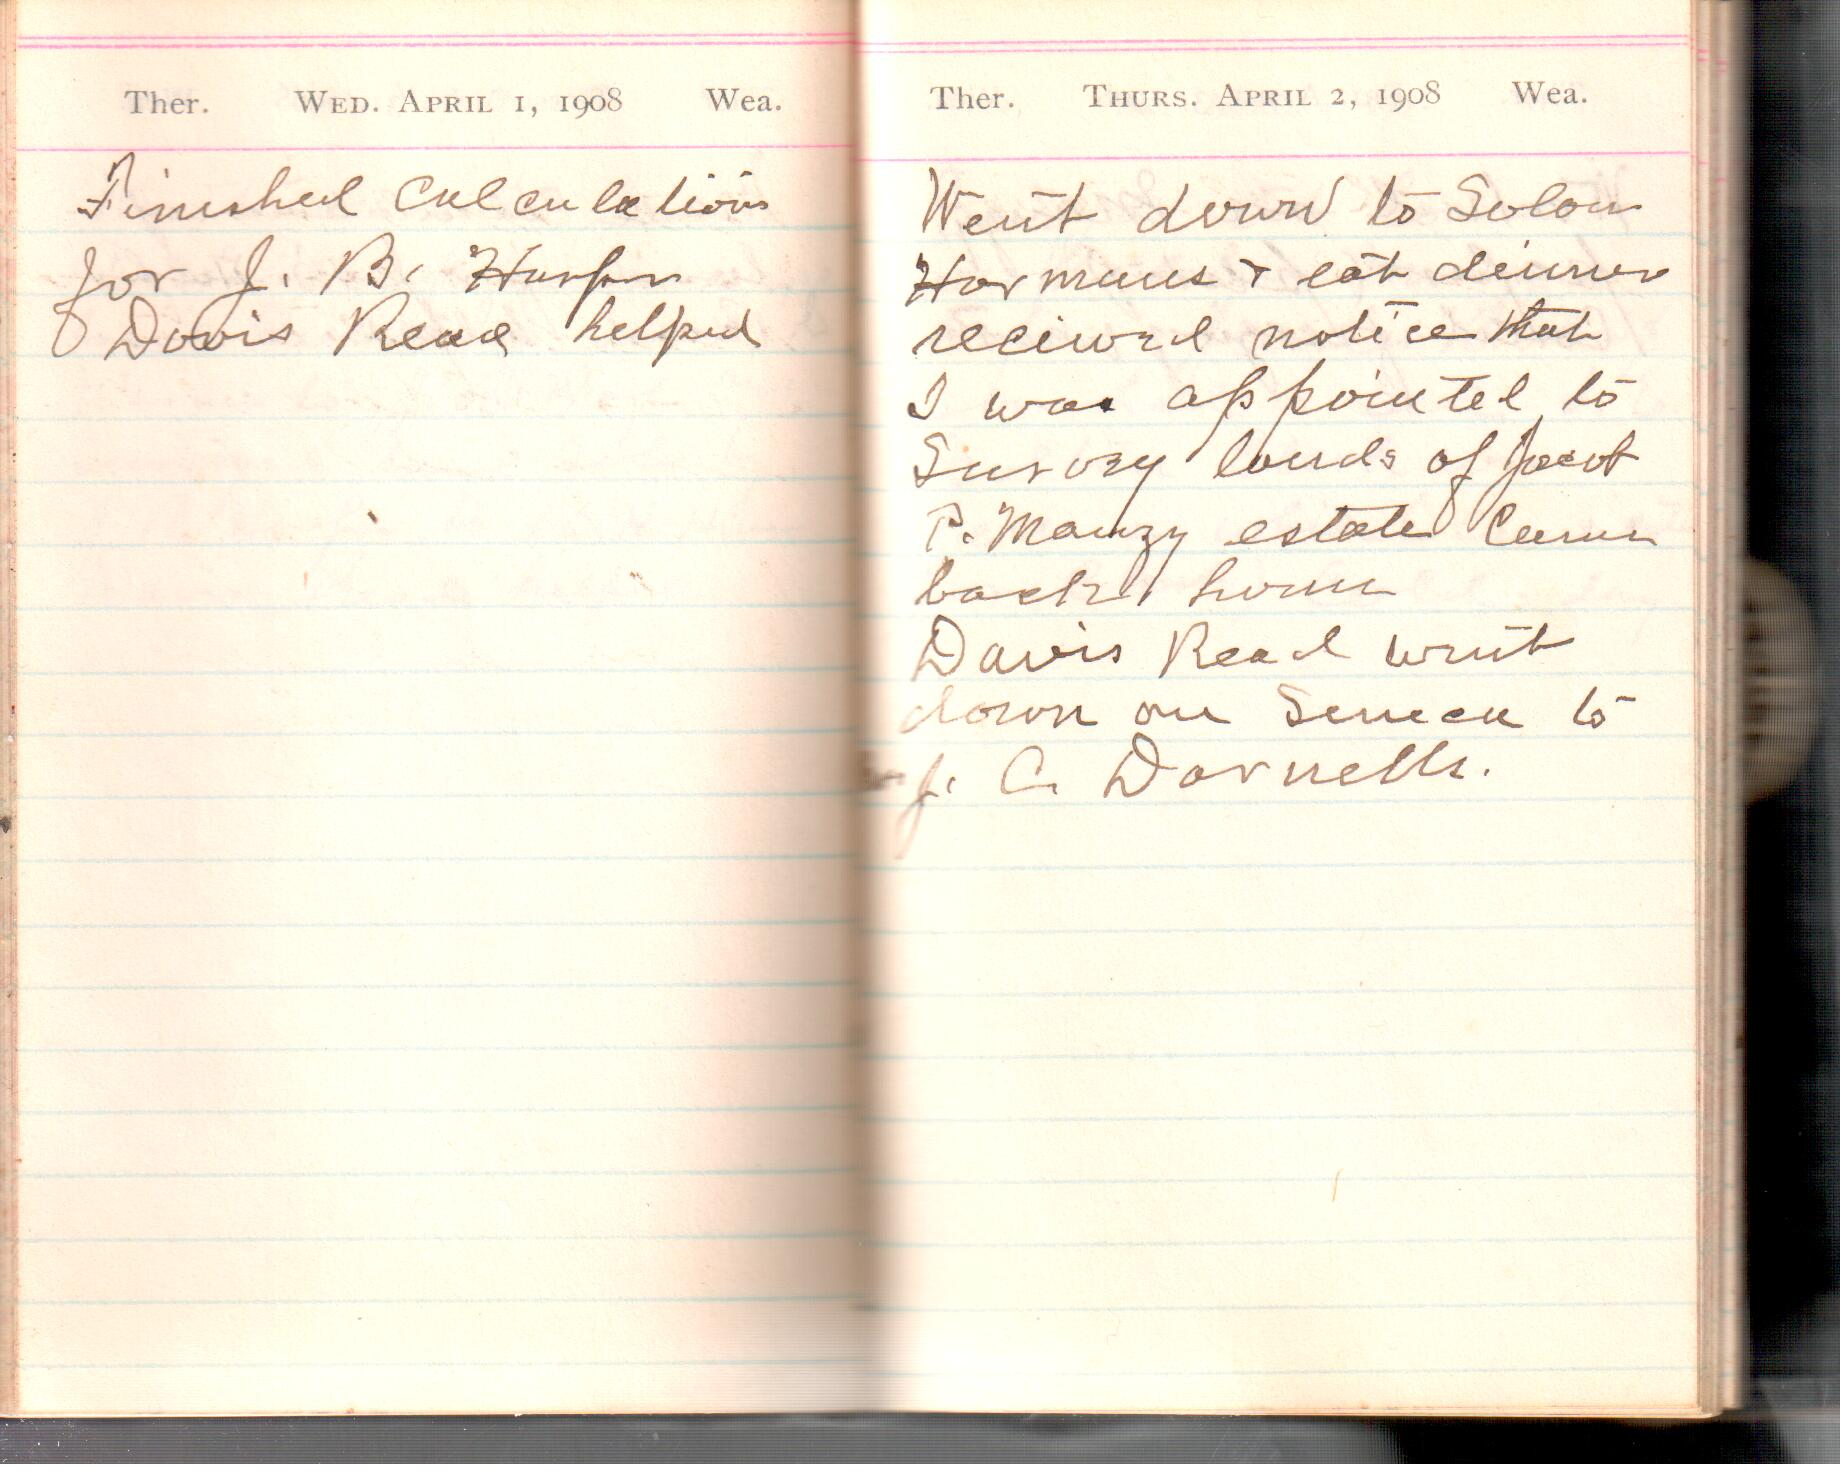 Ther. WED. APRIL 1, 1908 Wea.
Finished Calculations
for J. B. Harper
Davis Read helped
Ther. THURS. APRIL 2, 1908 Wea.
Went down to Solon
Harmans & eat dinner
recieved notice that
I was appointed to
Survey lands of Jacob
P. Mauzy estate Came
back home
Davis Read went
down on Seneca to
J. C. Darnells.